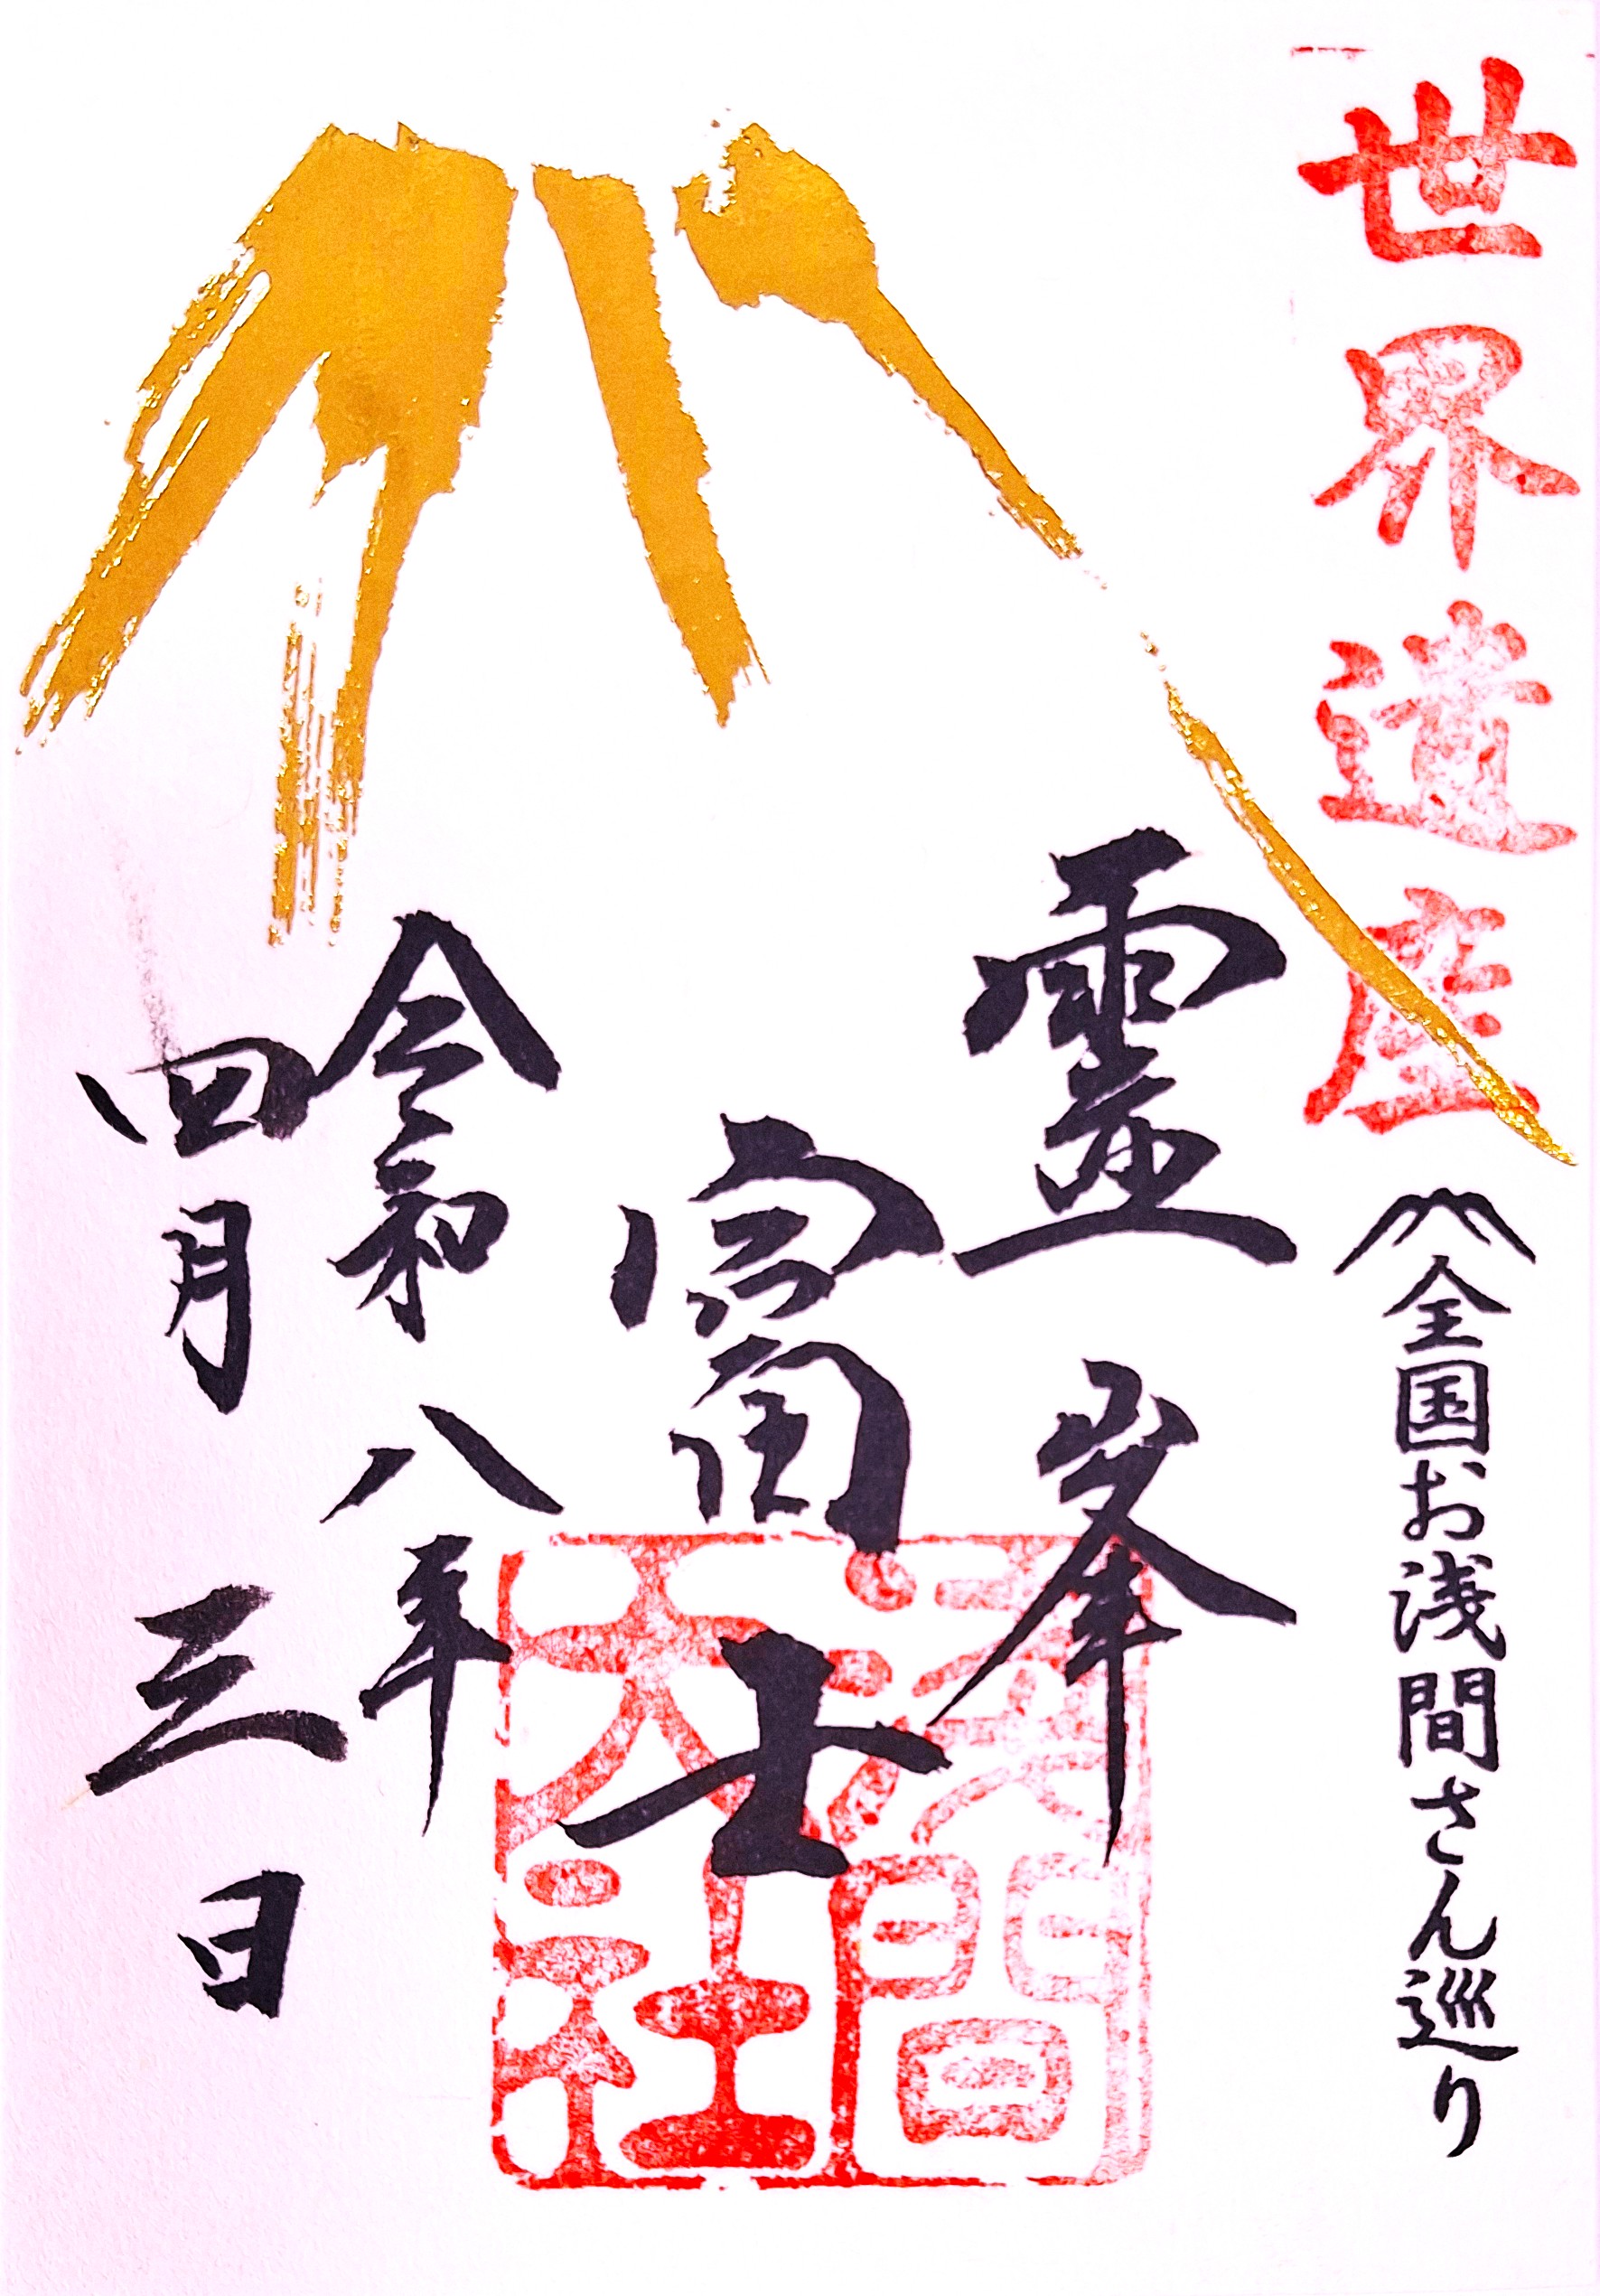 世界遺産
全国お浅間さん巡り
霊峯
富士
浅間大社
令和八年
四月三日